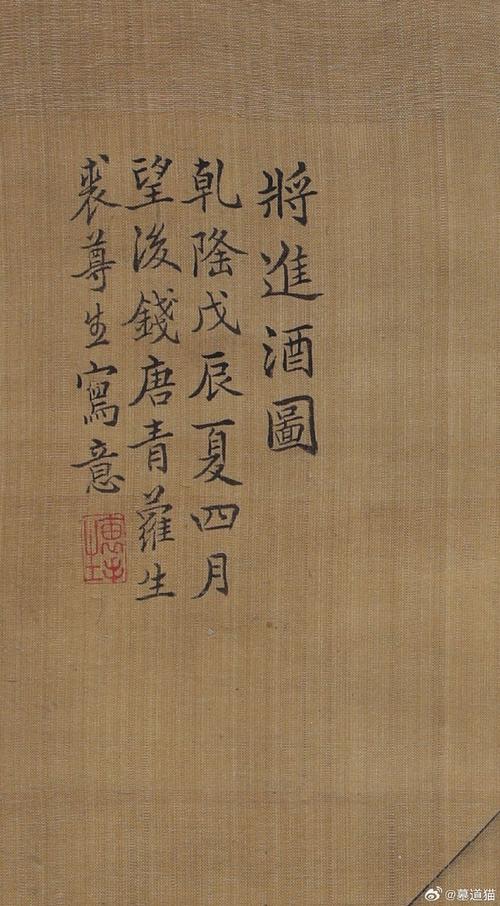 將進酒圖
乾隆戊辰夏四月
望後錢唐青蘿生
裘尊生寫意
@墓道猫